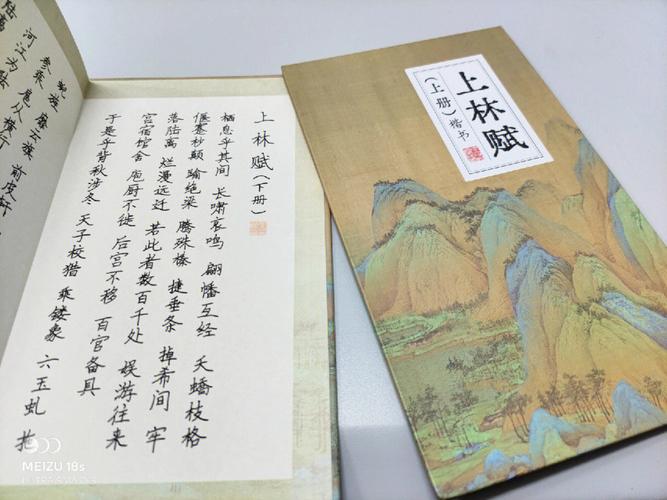 上林赋（下册）
栖息乎其间 长啸哀鸣 翩幡互经 夭蟜枝格
偃蹇杪颠 踰绝梁 腾殊榛 捷垂条 掉希间 牢
落陆离 烂漫远迁 若此者数百千处 娱游往来
宫宿馆舍 庖厨不徙 后宫不移 百官备具
于是乎背秋涉冬 天子校猎 乘镂象 六玉虬 拖
旌 靡云旗 前皮轩
参乘 扈从横行
河江为
上林赋
（上册）楷书
MEIZU 18s